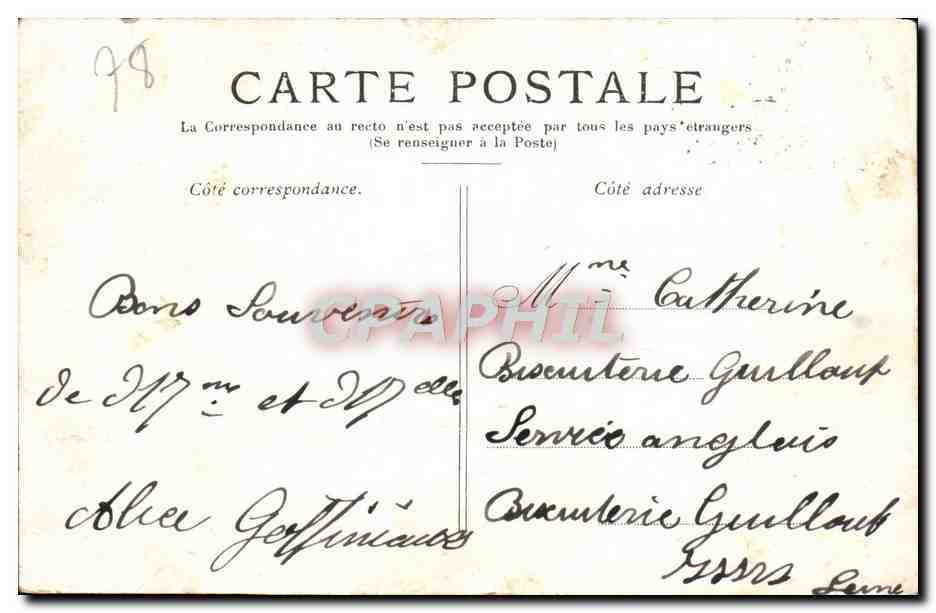 78
CARTE POSTALE
La Correspondance au recto n'est pas acceptée par tous les pays étrangers
(Se renseigner à la Poste)
Côté correspondance.
Côté adresse
Bons Souvenirs
de Mme et Melle
Alice
Mme Catherine
Biscuterie Guillout
Service anglais
Biscuterie Guillout
Issis
Seine
CPAPHIL